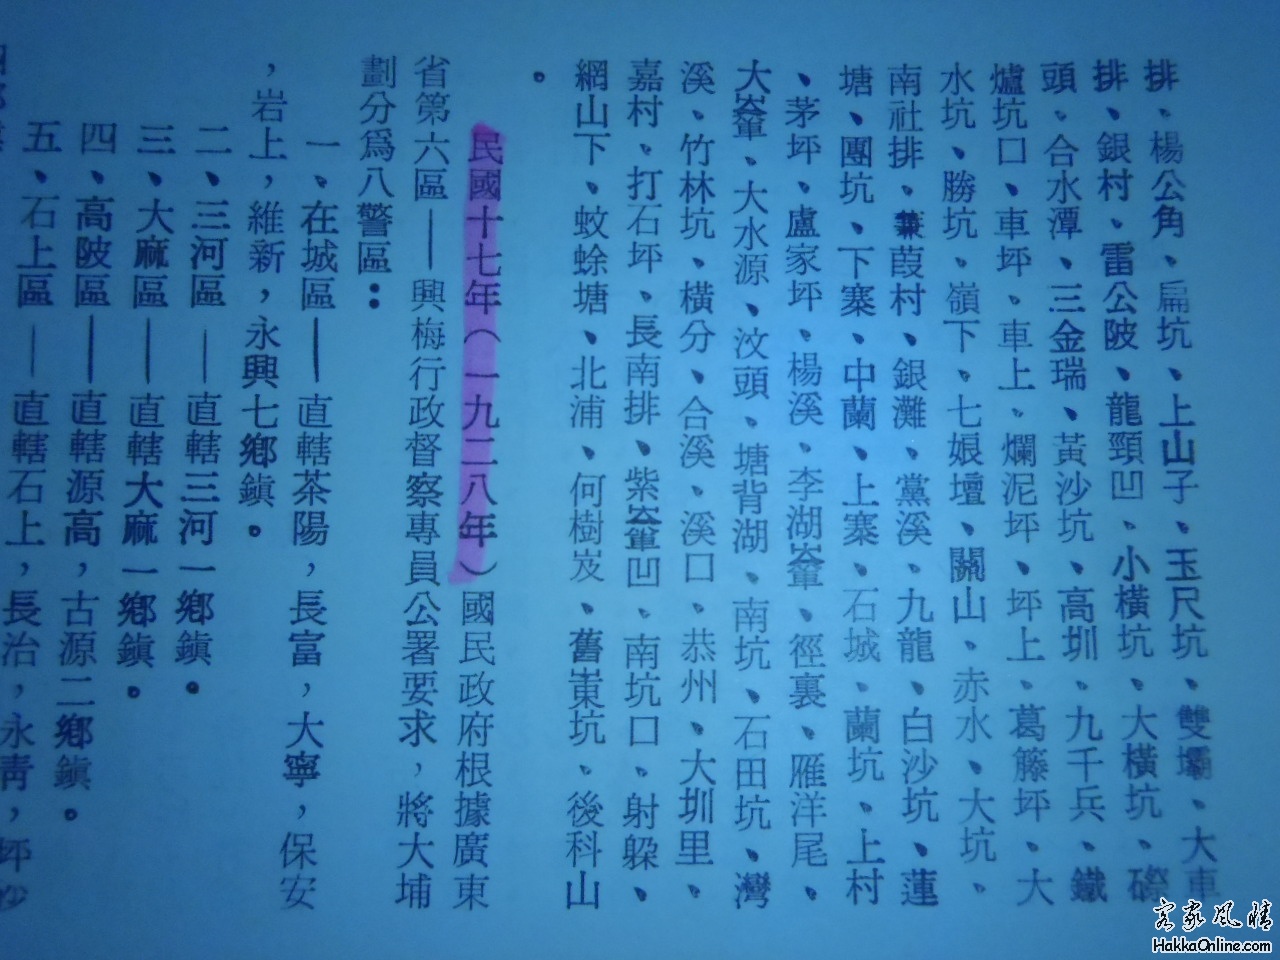 排、楊公角、扁坑、上山子、玉尺坑、雙壩、大車
排、銀村、雷公陂、龍頸凹、小橫坑、大橫坑、磜
頭、合水潭、三金瑞、黃沙坑、高圳、九千兵、鐵
爐坑口、車坪、車上、爛泥坪、坪上、葛籐坪、大
水坑、勝坑、嶺下、七娘壇、關山、赤水、大坑、
南社排、蒹葭村、銀灘、黨溪、九龍、白沙坑、蓮
塘、團坑、下寨、中蘭、上寨、石城、蘭坑、上村
、茅坪、盧家坪、楊溪、李湖輋、徑裏、雁洋尾、
大輋、大水源、汶頭、塘背湖、南坑、石田坑、灣
溪、竹林坑、橫分、合溪、溪口、恭州、大圳里、
嘉村、打石坪、長南排、紫輋凹、南坑口、射躱、
網山下、蚊蜍塘、北浦、何樹岌、舊崬坑、後科山
。
民國十七年（一九二八年）國民政府根據廣東
省第六區——興梅行政督察專員公署要求，將大埔
劃分爲八警區：
一、在城區——直轄茶陽，長富，大寧，保安
，岩上，維新，永興七鄉鎭。
二、三河區——直轄三河一鄉鎭。
三、大麻區——直轄大麻一鄉鎭。
四、高陂區——直轄源高，古源二鄉鎭。
五、石上區——直轄石上，長治，永靑，坪沙
客家風情
HakkaOnline.com